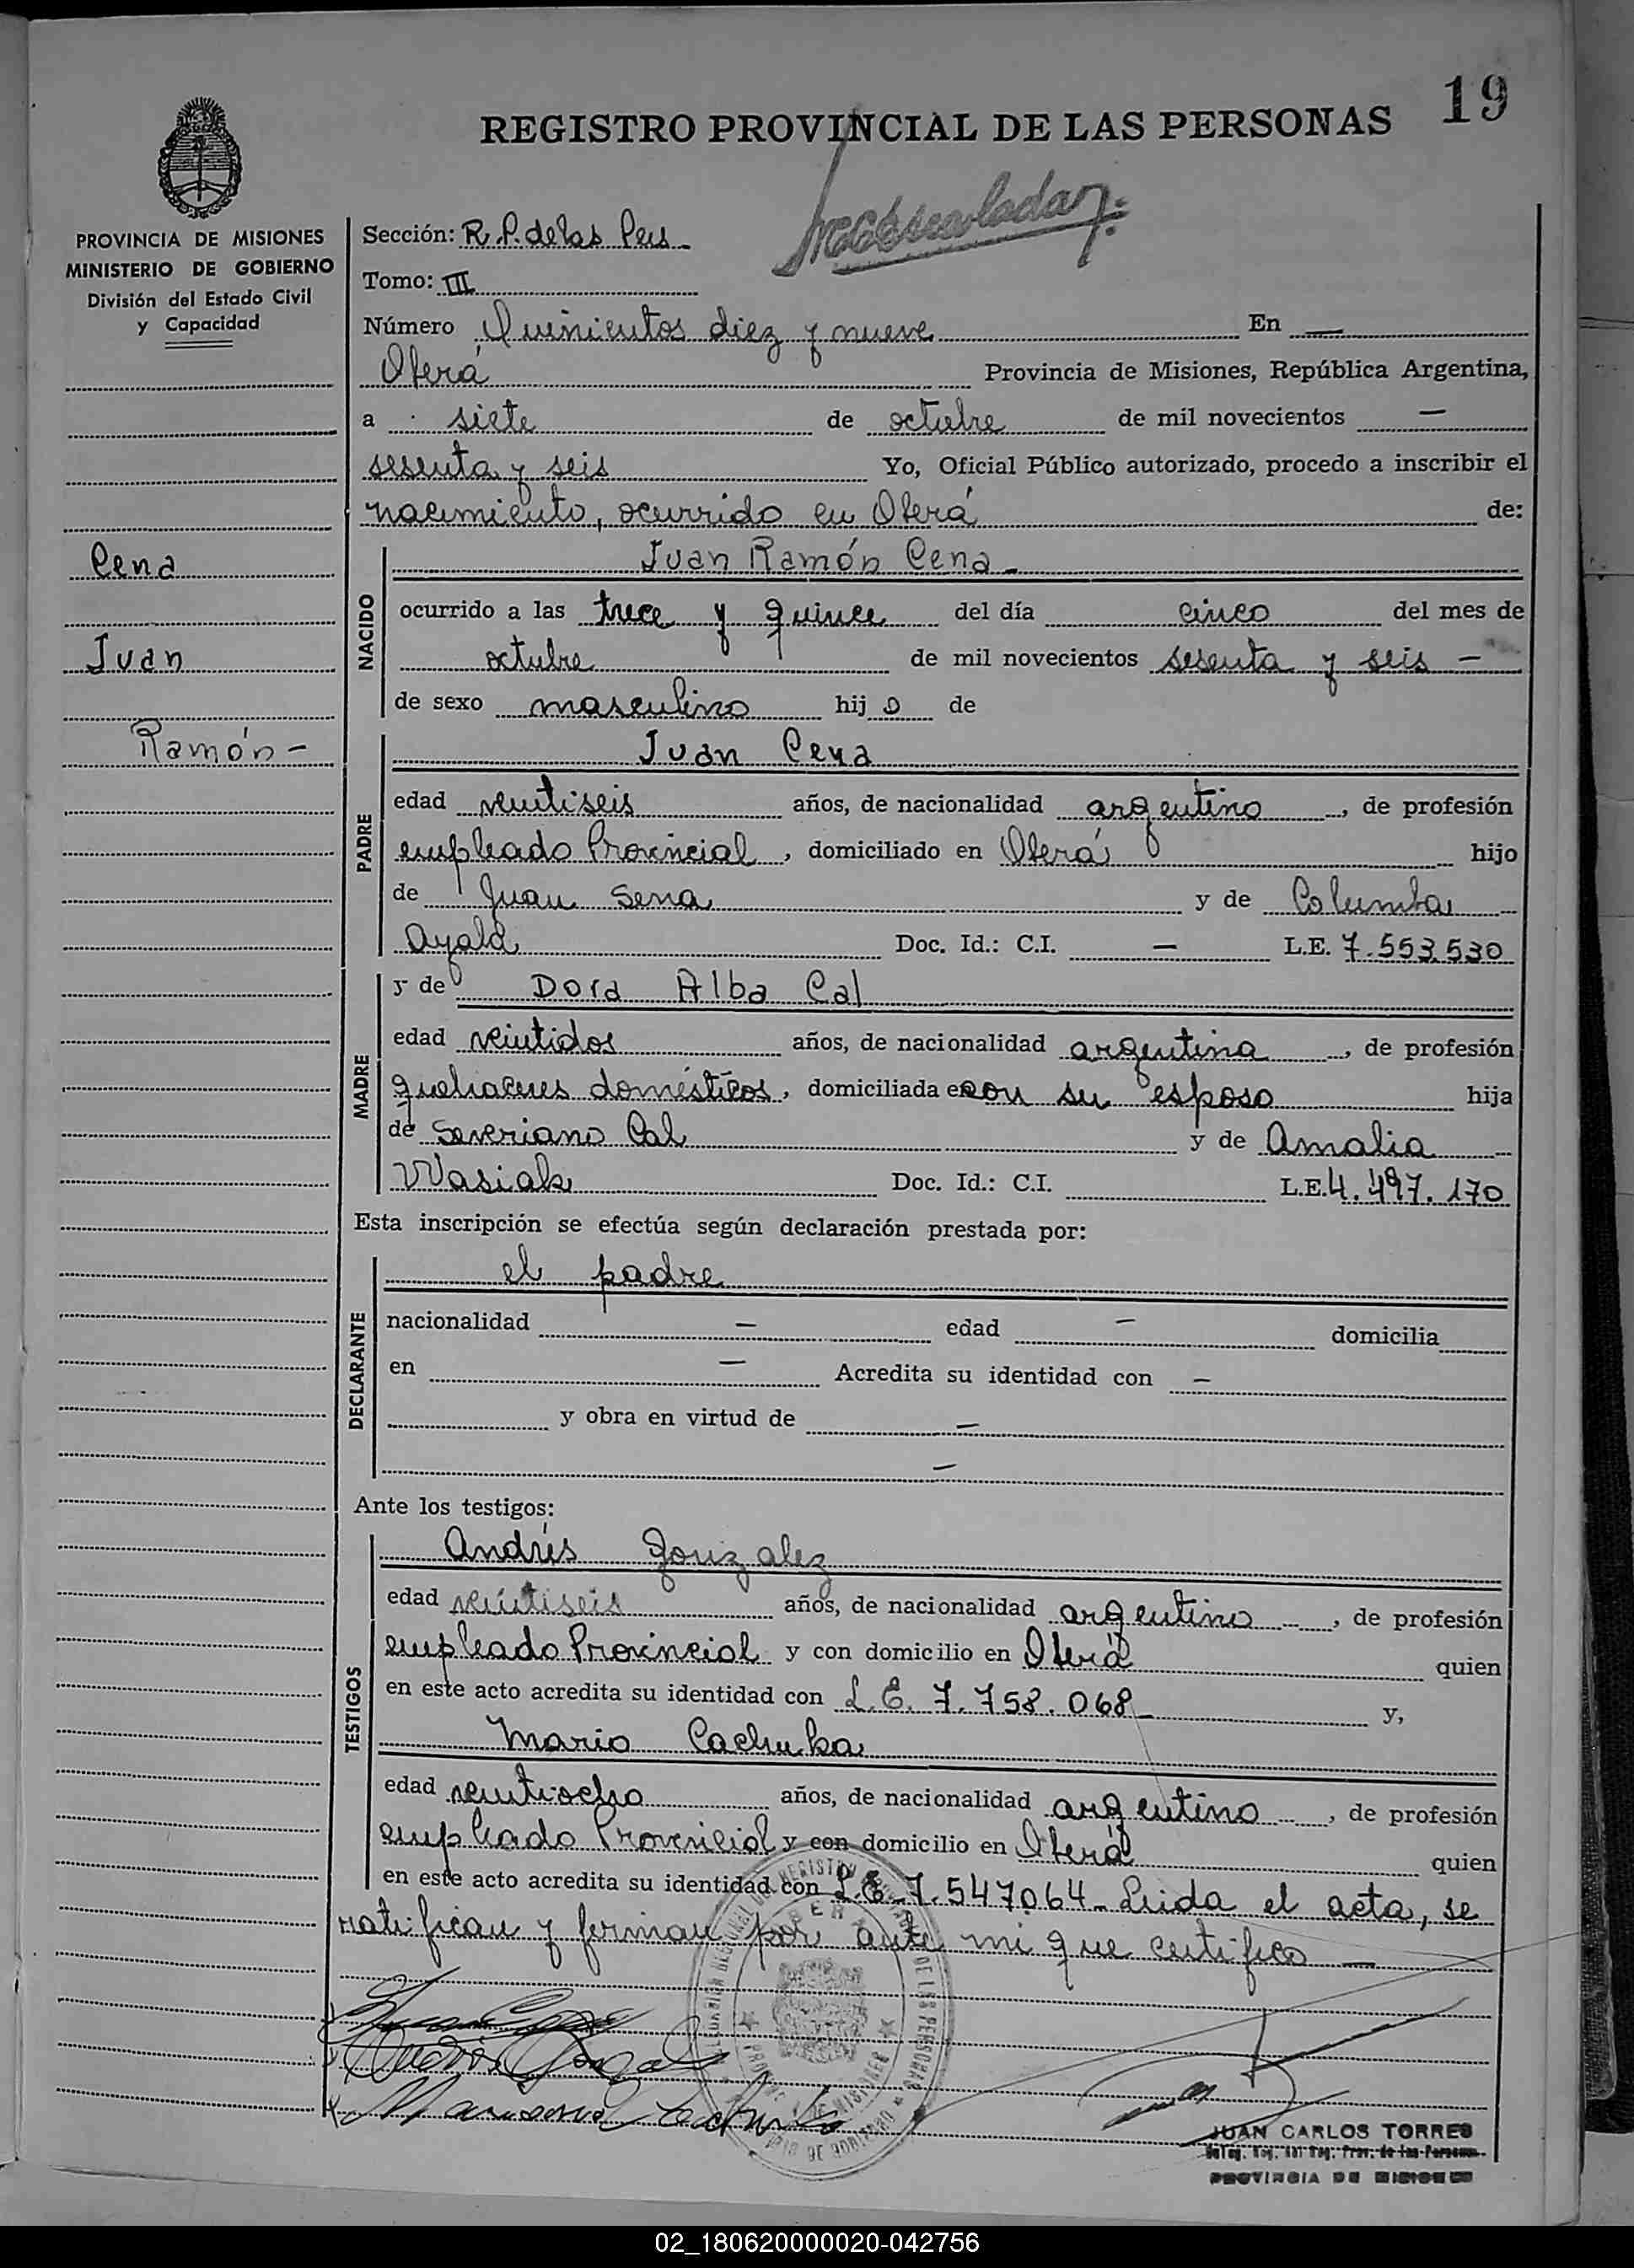 19
REGISTRO PROVINCIAL DE LAS PERSONAS
PROVINCIA DE MISIONES
MINISTERIO DE GOBIERNO
División del Estado Civil
y Capacidad
Cena
Juan
Ramón -
Sección: R.P. de las Pers -
Tomo: III
Número Quinientos diez y nueve En —
Oberá Provincia de Misiones, República Argentina,
a siete de octubre de mil novecientos —
sesenta y seis Yo, Oficial Público autorizado, procedo a inscribir el
nacimiento, ocurrido en Oberá de:
NACIDO
Juan Ramón Cena -
ocurrido a las trece y quince del día cinco del mes de
octubre de mil novecientos sesenta y seis -
de sexo masculino hijo de
PADRE
Juan Cena
edad veintiseis años, de nacionalidad argentino, de profesión
empleado Provincial, domiciliado en Oberá hijo
de Juan Sena y de Columba
Ayala Doc. Id.: C.I. — L.E. 7.553.530
MADRE
y de Dora Alba Cal
edad veintidos años, de nacionalidad argentina, de profesión
quehaceres domésticos, domiciliada con su esposo hija
de Severiano Cal y de Amalia
Wasiak Doc. Id.: C.I. L.E. 4.497.170
Esta inscripción se efectúa según declaración prestada por:
DECLARANTE
el padre
nacionalidad — edad — domicilia
en — Acredita su identidad con —
y obra en virtud de —
—
Ante los testigos:
TESTIGOS
Andrés Gonzalez
edad veintiseis años, de nacionalidad argentino, de profesión
empleado Provincial y con domicilio en Oberá quien
en este acto acredita su identidad con L.E. 7.758.068 - y,
Mario Cachuka
edad veintiocho años, de nacionalidad argentino, de profesión
empleado Provincial y con domicilio en Oberá quien
en este acto acredita su identidad con L.E. 7.547.064 - Leida el acta, se
ratifican y firman por ante mi que certifico —
JUAN CARLOS TORRES
PROVINCIA DE MISIONES
02_180620000020-042756